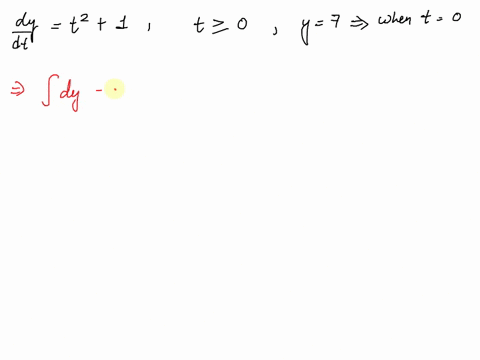 dy/dt = t² + 1 , t ≥ 0 , y = 7 ⇒ when t = 0
⇒ ∫ dy -